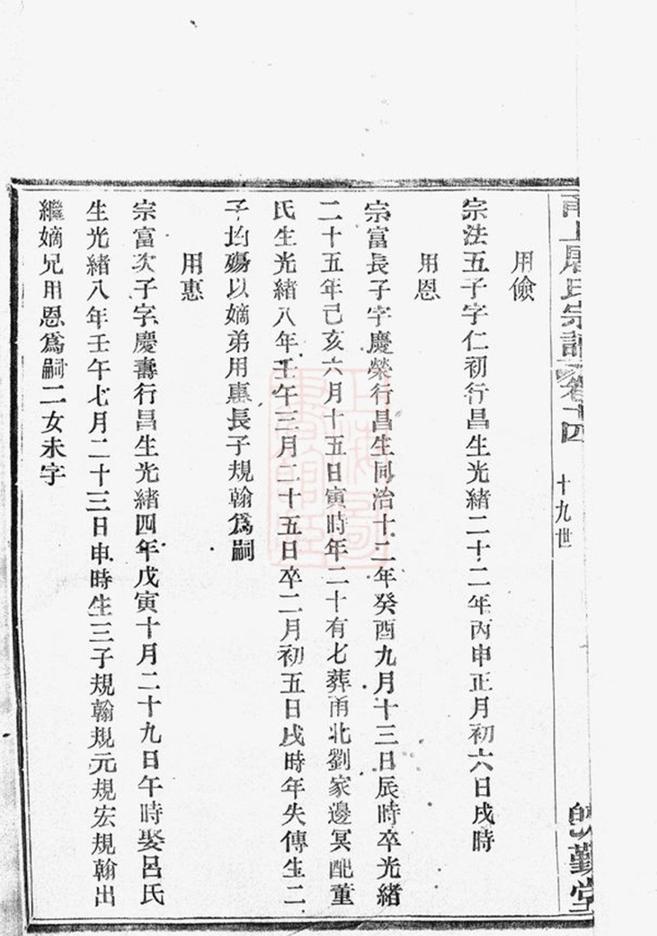 甬上屠氏宗譜 卷十四
十九世
勤堂
用儉
宗法五子字仁初行昌生光緒二十二年丙申正月初六日戌時
用恩
宗富長子字慶榮行昌生同治十二年癸酉九月十三日辰時卒光緒
二十五年己亥六月十五日寅時年二十有七葬甬北劉家邊冥配董
氏生光緒八年壬午三月二十五日卒二月初五日戌時年失傳生二
子均殤以嫡弟用惠長子規翰爲嗣
用惠
宗富次子字慶壽行昌生光緒四年戊寅十月二十九日午時娶呂氏
生光緒八年壬午七月二十三日申時生三子規翰規元規宏規翰出
繼嫡兄用恩爲嗣二女未字